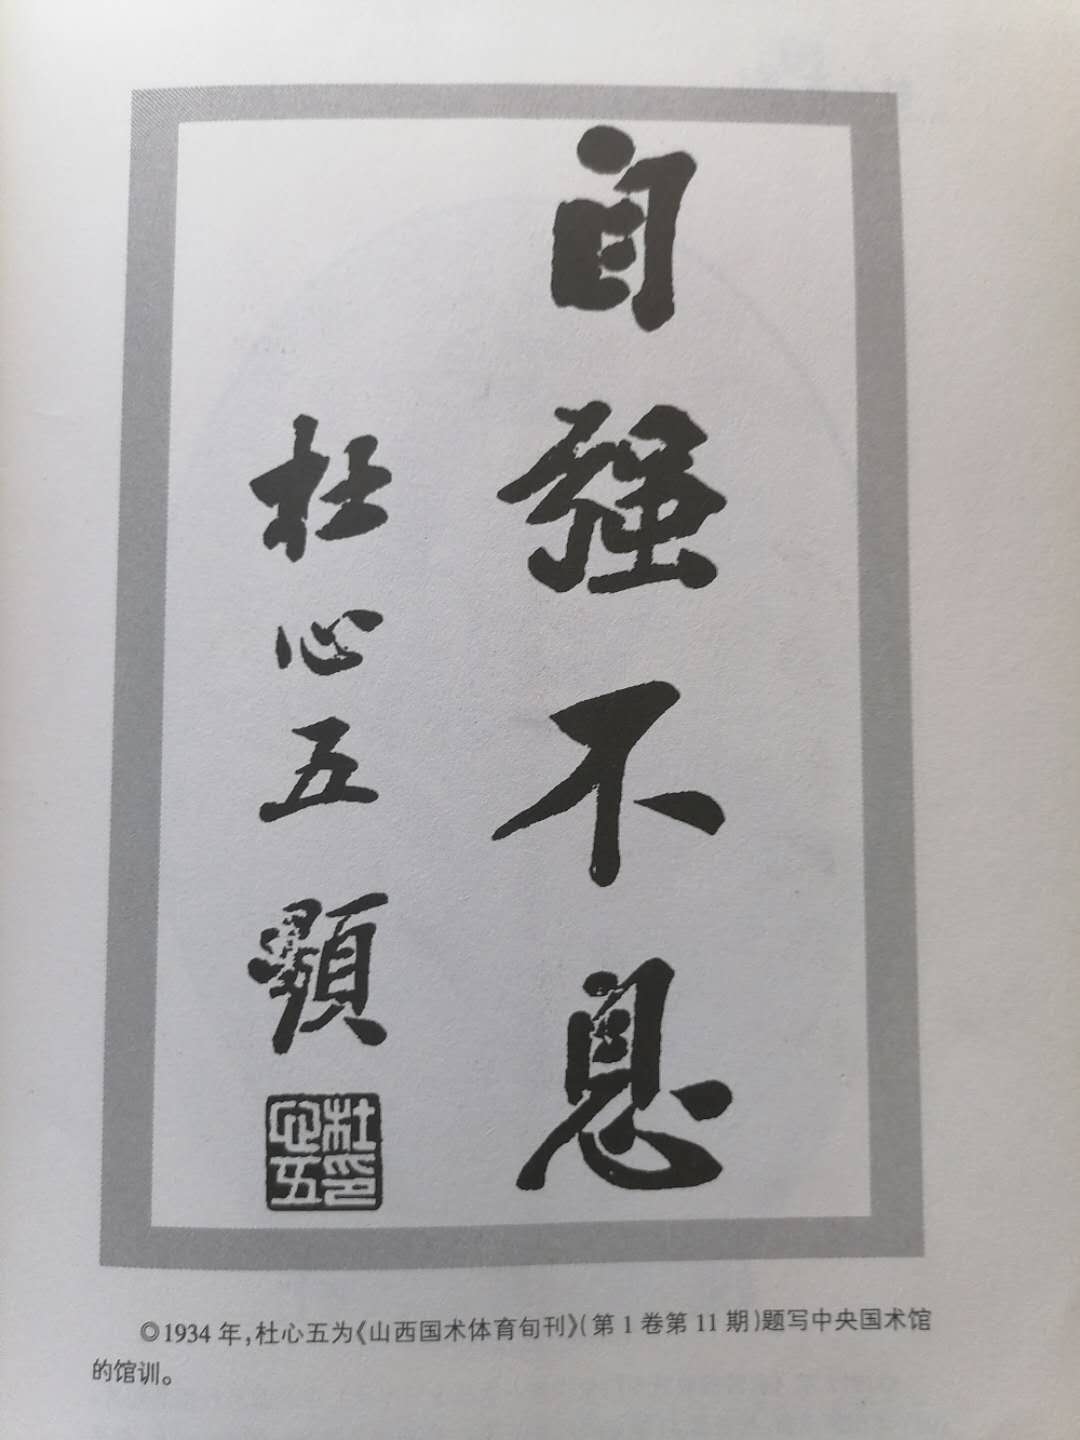 自强不息
杜心五題
杜印
心五
◎1934年,杜心五为《山西国术体育旬刊》(第1卷第11期)题写中央国术馆
的馆训。